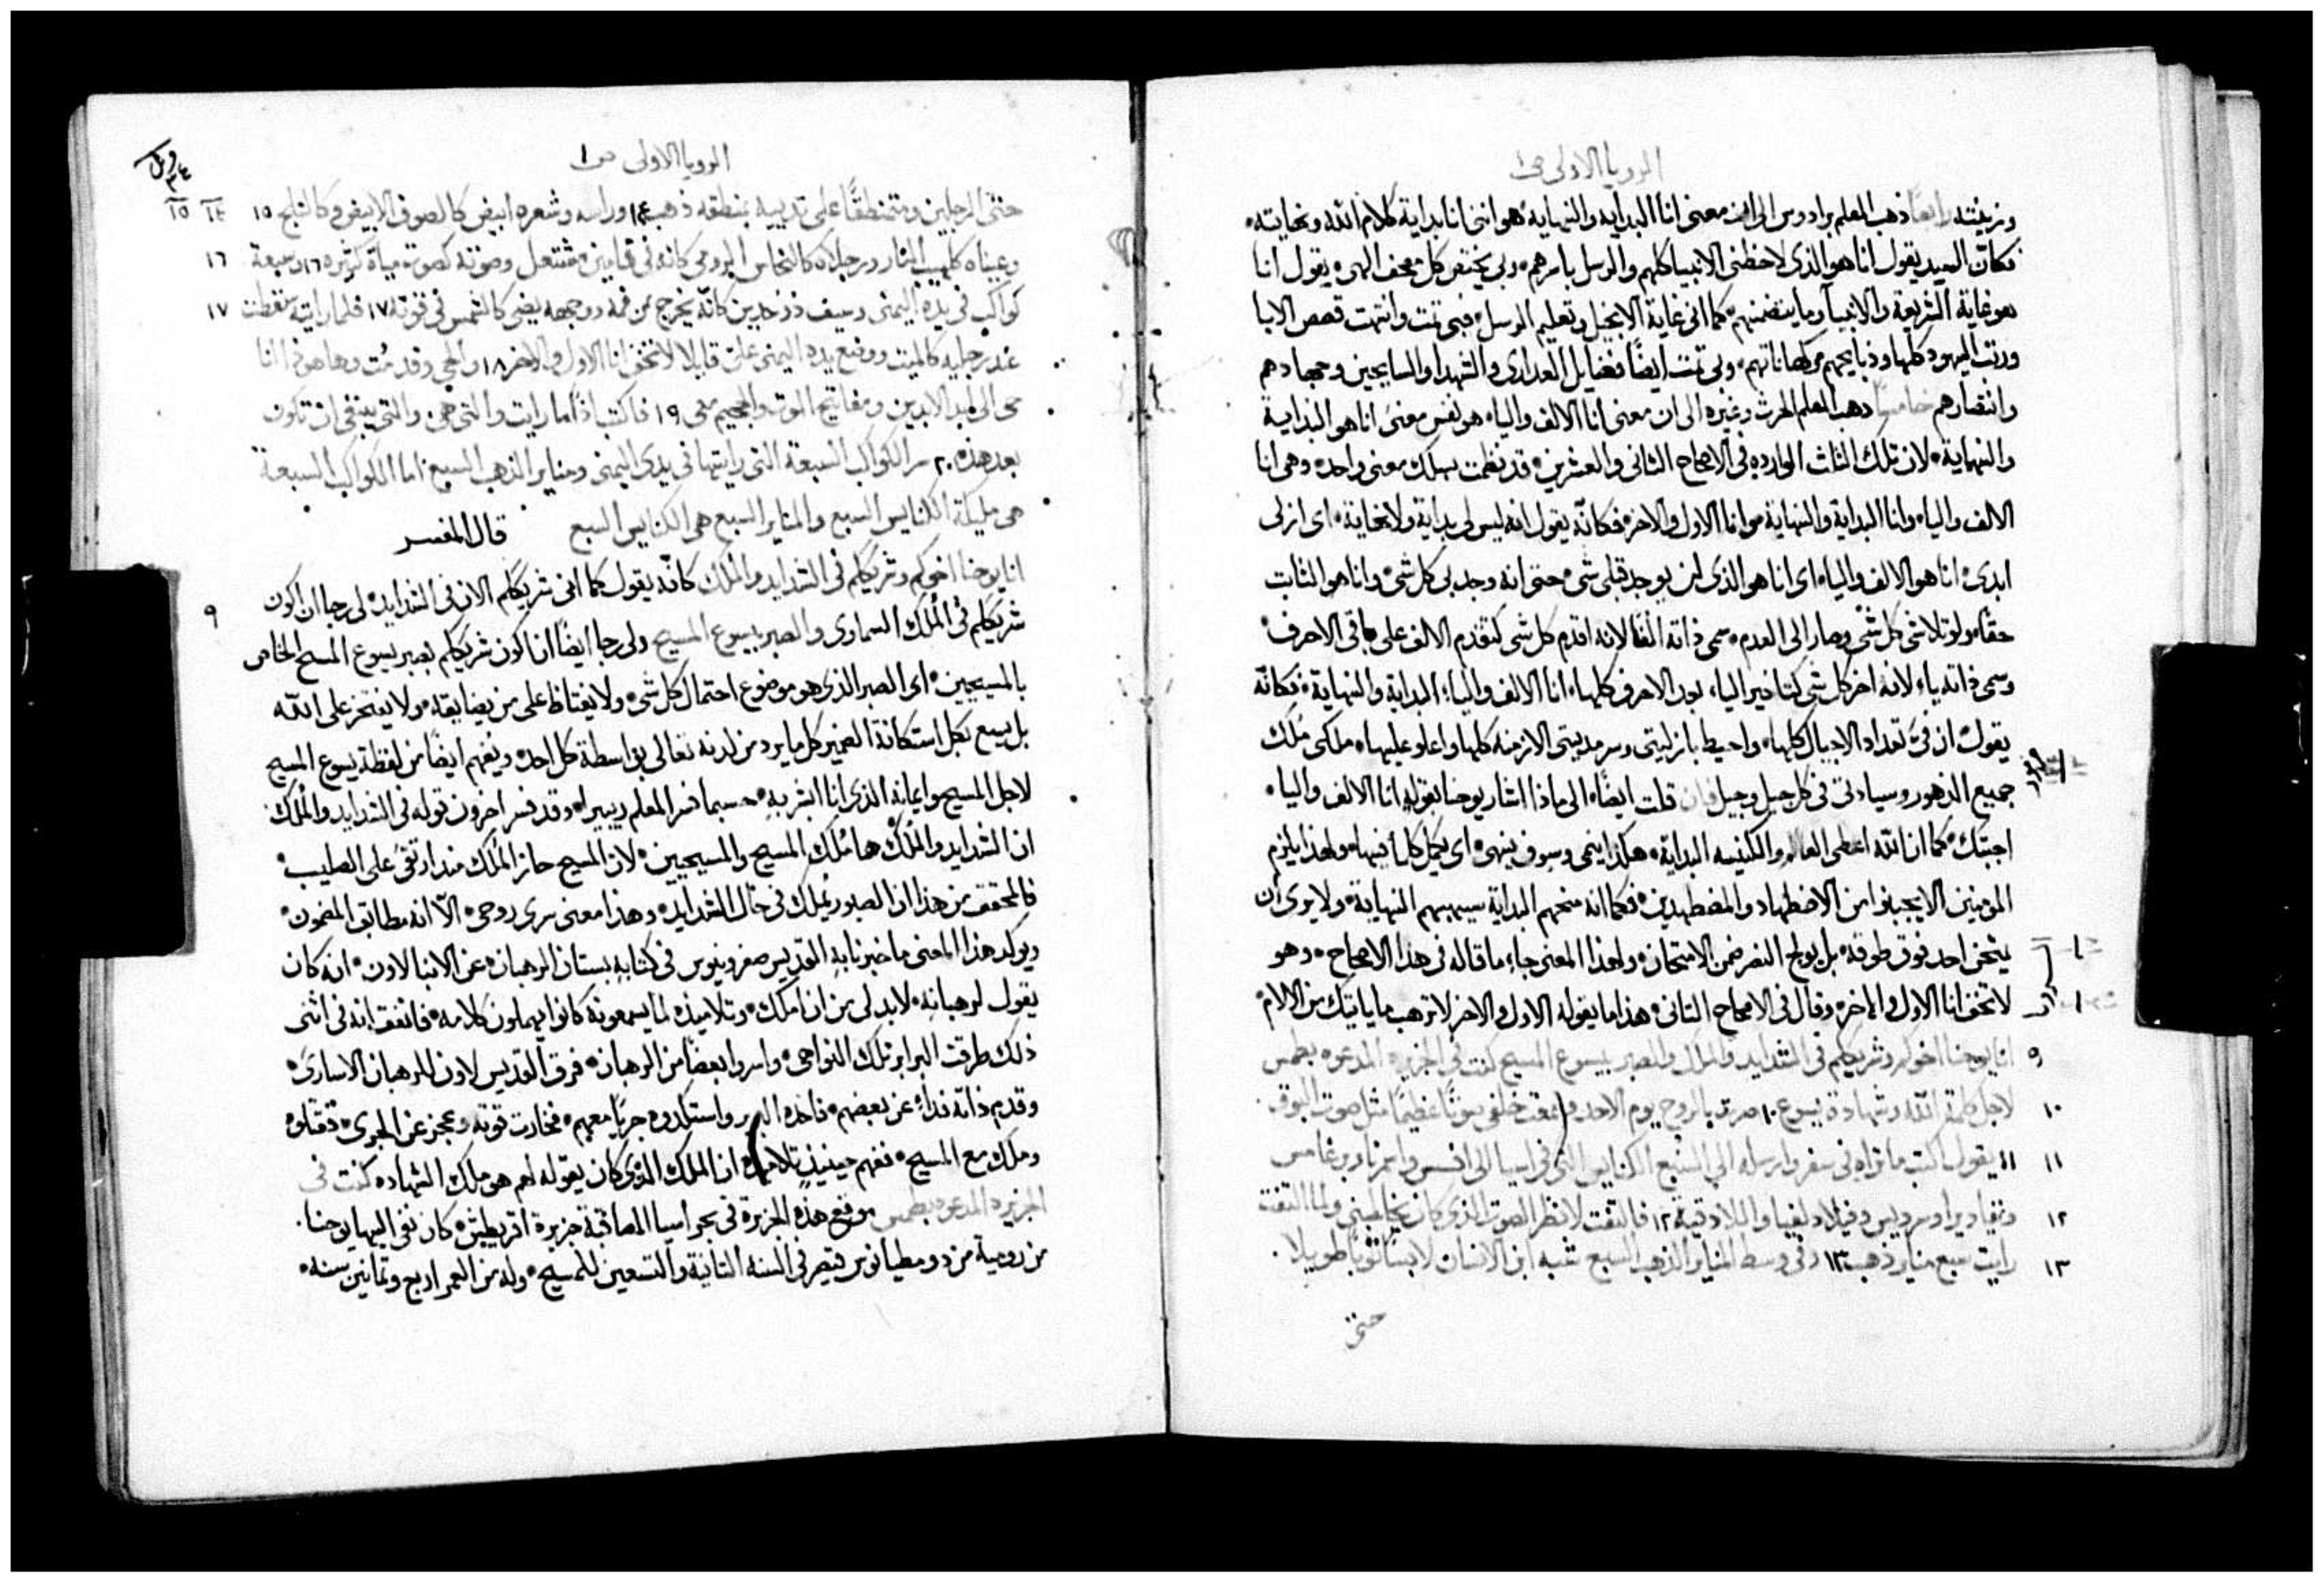 الرويا الاولى ص١
وزينته رابعًا ذهب المعلم برادوس الى ان معنى انا البدايه والنهايه هو انني انا بداية كلام الله ونهايته
فكانّ السيد يقول انا هو الذي لاحظني الانبيا كلهم والرسل باسرهم وبي يختص كل مصحف الهي يقول انا
هو غاية الشريعة والانبيآ وما يتضمنهم كما اني غاية الانجيل وتعليم الرسل فبي تمت وانتهت قصص الابا
ورتب اليهود كلها وذبايحهم وكهاناتهم وبي تمت ايضًا فضايل العدارى والشهدا والسايحين وجهادهم
وانتصارهم خامسًا ذهب المعلم الحرث وغيره الى ان معنى انا الالف واليا هو نفس معنى انا هو البداية
والنهاية لان تلك الثلث الوارده في الاصحاح الثاني والعشرين قد نظمت بسلك معنى واحد وهي انا
الالف واليا وانا البداية والنهاية وانا الاول والاخر فكانّه يقول انه ليس لي بداية ولا نهاية اي ازلي
ابدي انا هو الالف واليا اي انا هو الذي لن يوجد قبلي شي حتى انه وجد بي كل شي وانا هو الثابت
حقًا ولو تلاشى كل شي وصار الى العدم سمى ذاته الفًا لانه اقدم كل شي كتقدم الالف على باقي الاحرف
وسمى ذاته ياء لانه اخر كل شي كتاخير اليا بعد الاحرف كلها انا الالف واليا البداية والنهاية فكانّه
يقول ان فيّ تعداد الاجيال كلها واحيط بازليتي وسرمديتي الازمنه كلها واعلو عليها ملكي مُلك
جميع الدهور وسيادتي في كل جيل وجيل فان قلت ايضًا الى ماذا اشار يوحنا بقوله انا الالف واليا
اجبتك كما ان الله اعطى العالم والكنيسه البداية هكذا ينمي وسوف ينهي اي يكمل كلاً فيها ولهذا يلزم
المومنين الا يجبنوا من الاضطهاد والمضطهدين فكما انه منحهم البداية سيهبهم النهاية ولا يرى ان
يمتحن احد فوق طوقه بل يولج النصر ضمن الامتحان ولهذا المعنى جاء ما قاله في هذا الاصحاح وهو
لا تخف انا الاول والاخر وقال في الاصحاح الثاني هذا ما يقوله الاول والاخر لا ترهب ما ياتيك من الالام
٩ انا يوحنا اخوكم وشريككم في الشدايد والملك والصبر بيسوع المسيح كنت في الجزيره المدعوه بطمس
١٠ لاجل كلمة الله وشهادة يسوع ١٠ صرت بالروح يوم الاحد وسمعت خلفي صوتًا عظيمًا مثل صوت البوق
١١ ١١ يقول اكتب ما تراه في سفر وارسله الي السبع الكنايس التي في اسيا الى افسس وازمرنا وبرغامس
١٢ وثياديرا وسرديس وفيلادلفيا واللادقية ١٢ فالتفت لانظر الصوت الذي كان يخاطبني ولما التفت
١٣ رايت سبع مناير ذهب ١٣ وفي وسط المناير الذهب السبع شبه ابن الانسان لابسًا ثوبًا طويلا
حتى
الرويا الاولى ص١
حتى الرجلين ومتمنطقًا على ثدييه بمنطقه ذهب ١٤ وراسه وشعره ابيض كالصوف الابيض وكالثلج ١٥ ١٤ ١٥
وعيناه كلهيب النار ورجلاه كالنحاس الرومي كانه في قمامين مشتعل وصوته كصوت مياه كثيره ١٦ وسبعة ١٦
كواكب في يده اليمنى وسيف ذو حدين كانّه يخرج من فمه ووجهه يضي كالشمس في قوته ١٧ فلما رايته سقطت ١٧
عند رجليه كالميت ووضع يده اليمنى عليّ قايلا لا تخف انا الاول والاخر ١٨ والحي وقد مُت وها هوذا انا
حي الى ابد الابدين ومفاتيح الموت والجحيم معي ١٩ فاكتب اذًا ما رايت والتي هي والتي ينبغي ان تكون
بعد هذه ٢٠ سر الكواكب السبعة التي رايتها في يدي اليمنى ومناير الذهب السبع اما الكواكب السبعة
هي مليكة الكنايس السبع والمناير السبع هي الكنايس السبع قال المفسر
٩ انا يوحنا اخوكم وشريككم في الشدايد والملك كانّه يقول كما انني شريككم الان في الشدايد لي رجا ان اكون
شريككم في المُلك السماوي والصبر بيسوع المسيح ولي رجا ايضًا ان اكون شريككم بصبر يسوع المسيح الخاص
بالمسيحيين اي الصبر الذي هو موضوع احتمال كل شي ولا يغتاظ على من يضايقه ولا يفتخر على الله
بل يسع بكل استكانة الضمير كل ما يرد من لدنه تعالى بواسطة كل احد ويفهم ايضًا من لفظة يسوع المسيح
لاجل المسيح وايمانه الذي انا ابشر به حسبما فسر المعلم ريبيرا وقد فسر اخرون قوله في الشدايد والمُلك
ان الشدايد والمُلك هما مُلك المسيح والمسيحيين لان المسيح حاز المُلك منذ ارتقى على الصليب
فالمحقق من هذا ان الصبور يملك في حال الشدايد وهذا معنى سري روحي الّا انه مطابق المضمون
ويوكد هذا المعنى ما خبرنا به القديس صفرونيوس في كتابه بستان الرهبان عن الانبا لاون انه كان
يقول لرهبانه لا بد لي من ان املك وتلاميذه لما يسمعونه كانوا يهملون كلامه فاتفق انه في اثنى
ذلك طرقت البرابر تلك النواحي واسروا بعضًا من الرهبان فرق القديس لاون للرهبان الاسارى
وقدم ذاته فداءً عن بعضهم فاخده البربر واستكدوه جريًا معهم فخارت قوته وعجز عن الجري فقتلوه
وملك مع المسيح ففهم حينيذٍ تلاميذه ان الملك الذي كان يقوله لهم هو ملك الشهاده كنت في
الجزيره المدعوه بطمس موقع هذه الجزيرة في بحر اسيا المصاقبة جزيرة اقريطش كان نفي اليها يوحنا
من رومية من دومطيانوس قيصر في السنه الثانية والتسعين للمسيح وله من العمر اربع وثمانين سنه